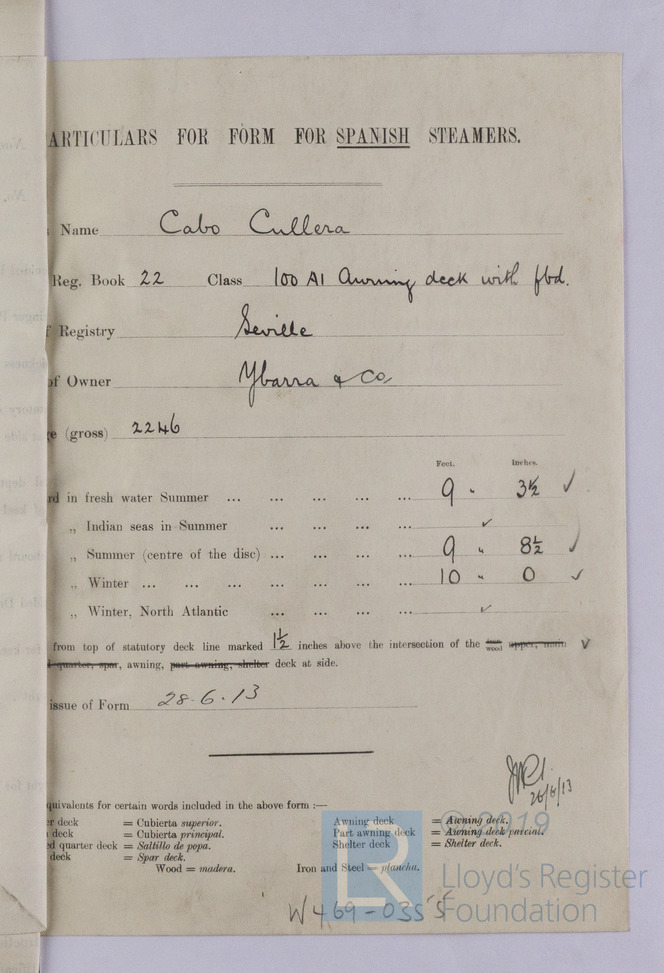 ARTICULARS FOR FORM FOR SPANISH STEAMERS.
Name Cabo Cullera
Reg. Book 22 Class 100 A1 Awning deck with fbd.
f Registry Seville
of Owner Ybarra & Co,
e (gross) 2246
Feet. Inches.
rd in fresh water Summer ... ... ... ... ... 9 " 3½ ✓
„ Indian seas in Summer ... ... ... ... ✓
„ Summer (centre of the disc) ... ... ... ... 9 " 8½ ✓
„ Winter ... ... ... ... ... ... ... 10 " 0 ✓
„ Winter, North Atlantic ... ... ... ... ✓
from top of statutory deck line marked 1½ inches above the intersection of the iron wood upper, main ✓
d quarter, spar, awning, part awning, shelter deck at side.
issue of Form 28.6.13
26/6/13
quivalents for certain words included in the above form :—
er deck = Cubierta superior. Awning deck = Awning deck.
deck = Cubierta principal. Part awning deck = Awning deck parcial.
ed quarter deck = Saltillo de popa. Shelter deck = Shelter deck.
deck = Spar deck.
Wood = madera. Iron and Steel = plancha.
© 2019
Lloyd's Register
Foundation
W469-0355